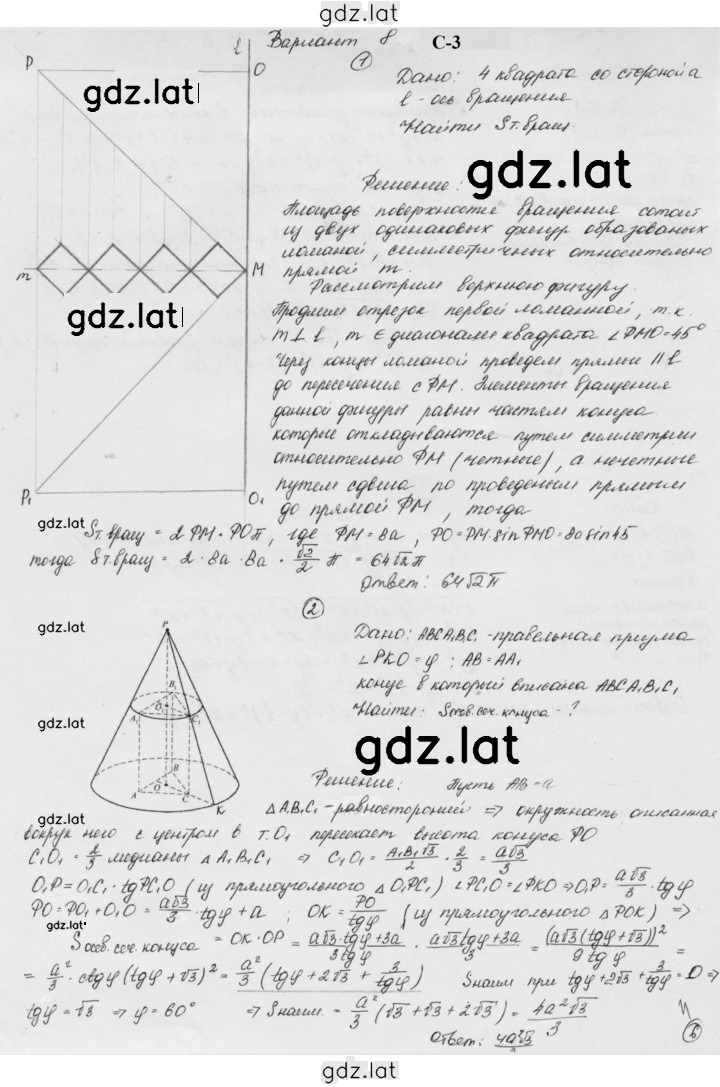 gdz.lat
Вариант 8 С-3
1
Дано: 4 квадрата со стороной a
l - ось вращения
Найти Sт.вращ
gdz.lat
P
l
O
m
M
P₁
O₁
gdz.lat
gdz.lat
Решение:
Площадь поверхностие вращения сотоит
из двух одинаковых фигур образованых
ломаной, симметричных относительно
прямой m.
Рассмотрим верхнюю фигуру.
Продлим отрезок первой ломанной, т.к.
m ⊥ l, m ∈ диагоналям квадрата ∠PMO=45°
Через концы ломаной проведем прямые || l
до пересечения с PM. Элементы вращения
данной фигуры равны частям конуса
которые откладываются путем симметрии
относительно PM (четные), а нечетные
путем сдвига по проведеным прямым
до прямой PM, тогда
gdz.lat
Sт.вращ = 2 PM · POπ, где PM = 8a, PO = PM sin PMO = 8a sin 45
тогда Sт.вращ = 2 · 8a · 8a · √2/2 π = 64√2π
Ответ: 64√2π
2
gdz.lat
Дано: ABCA₁B₁C₁ - правельная призма
∠PKO = φ ; AB = AA₁
конус в который вписана ABCA₁B₁C₁
Найти: Sосев.сеч. конуса - ?
gdz.lat
gdz.lat
P
B₁
O₁
A₁
C₁
B
A
O
C
K
Решение: Пусть AB = a
△A₁B₁C₁ - равносторонний ⇒ окружность описанная
вокруг него с центром в т. O₁ пересекает высота конуса PO
C₁O₁ = 2/3 медианы △A₁B₁C₁ ⇒ C₁O₁ = A₁B₁√3/2 · 2/3 = a√3/3
O₁P = O₁C₁ · tgPC₁O (из прямоугольного △O₁PC₁) ∠PC₁O = ∠PKO ⇒ O₁P = a√3/3 · tgφ
PO = PO₁ + O₁O = a√3/3 · tgφ + a ; OK = PO/tgφ (из прямоугольного △POK) ⇒
gdz.lat
Sосев.сеч. конуса = OK · OP = a√3·tgφ+3a/3tgφ · a√3tgφ+3a/3 = (a√3(tgφ+√3))²/9tgφ =
= a²/3 · ctgφ(tgφ+√3)² = a²/3 (tgφ + 2√3 + 3/tgφ) Sнаим. при tgφ+2√3+3/tgφ = 0 ⇒
tgφ = √3 ⇒ φ = 60° ⇒ Sнаим. = a²/3 (√3 + √3 + 2√3) = 4a²√3/3
Ответ: 4a²√3
gdz.lat